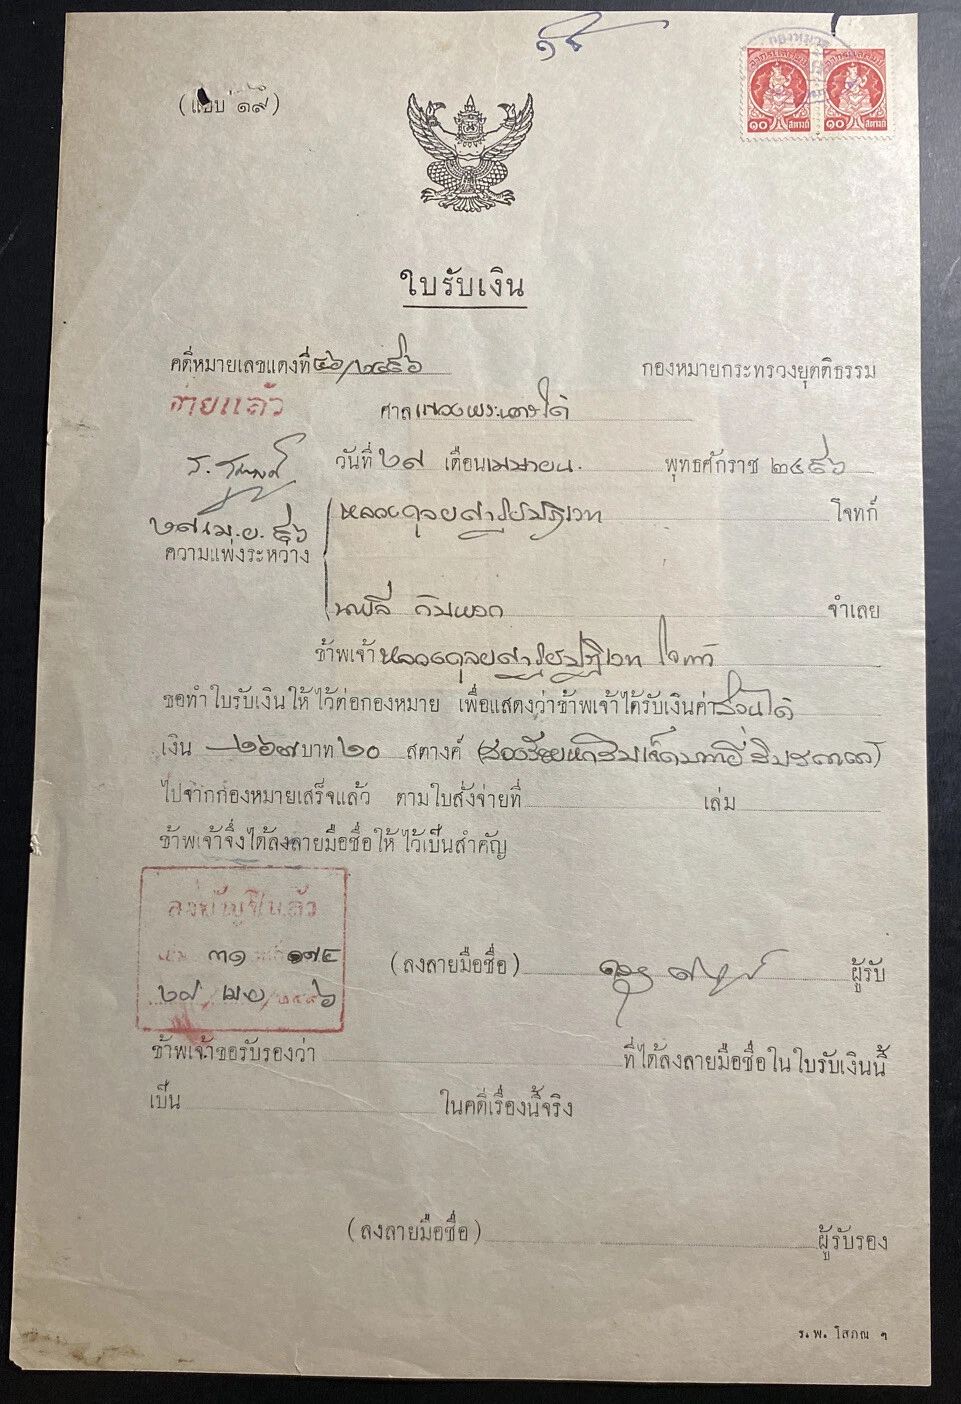 (แบบ ๑๙)
๑๐ สตางค์ ๑๐ สตางค์
ใบรับเงิน
คดีหมายเลขแดงที่ ๔๖/๒๔๘๖ กองหมายกระทรวงยุตติธรรม
จ่ายแล้ว ศาล
วันที่ ๒๙ เดือน เมษายน. พุทธศักราช ๒๔๘๖
๒๙ เม.ย. ๘๖
หลวงดุลย โจทก์
ความแพ่งระหว่าง
จำเลย
ข้าพเจ้า หลวงดุลย โจทก์
ขอทำใบรับเงินให้ไว้ต่อกองหมาย เพื่อแสดงว่าข้าพเจ้าได้รับเงินค่า ส่วนได้
เงิน ๒๖๗ บาท ๒๐ สตางค์ (สองร้อยหกสิบเจ็ดบาทยี่สิบสตางค์)
ไปจากกองหมายเสร็จแล้ว ตามใบสั่งจ่ายที่ เล่ม
ข้าพเจ้าจึ่งได้ลงลายมือชื่อให้ไว้เป็นสำคัญ
ลงบัญชีแล้ว
๓๑ ๑๗๔
(ลงลายมือชื่อ) ผู้รับ
๒๙ เมย ๒๔๘๖
ข้าพเจ้าขอรับรองว่า ที่ได้ลงลายมือชื่อในใบรับเงินนี้
เป็น ในคดีเรื่องนี้จริง
(ลงลายมือชื่อ) ผู้รับรอง
ร.พ. โสภณ ๆ